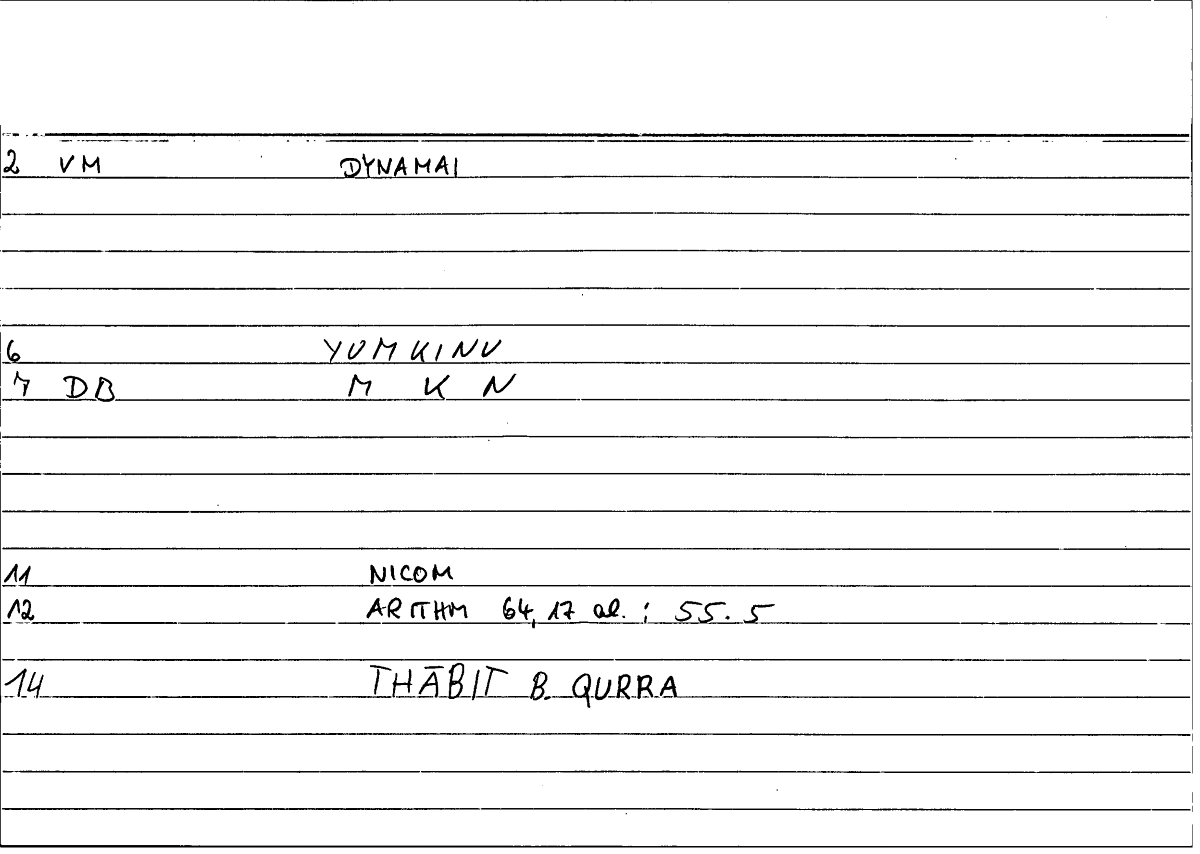 2 VM DYNAMAI
6 YUMKINU
7 DB M K N
11 NICOM
12 ARITHM 64,17 al. : 55.5
14 THĀBIT B. QURRA